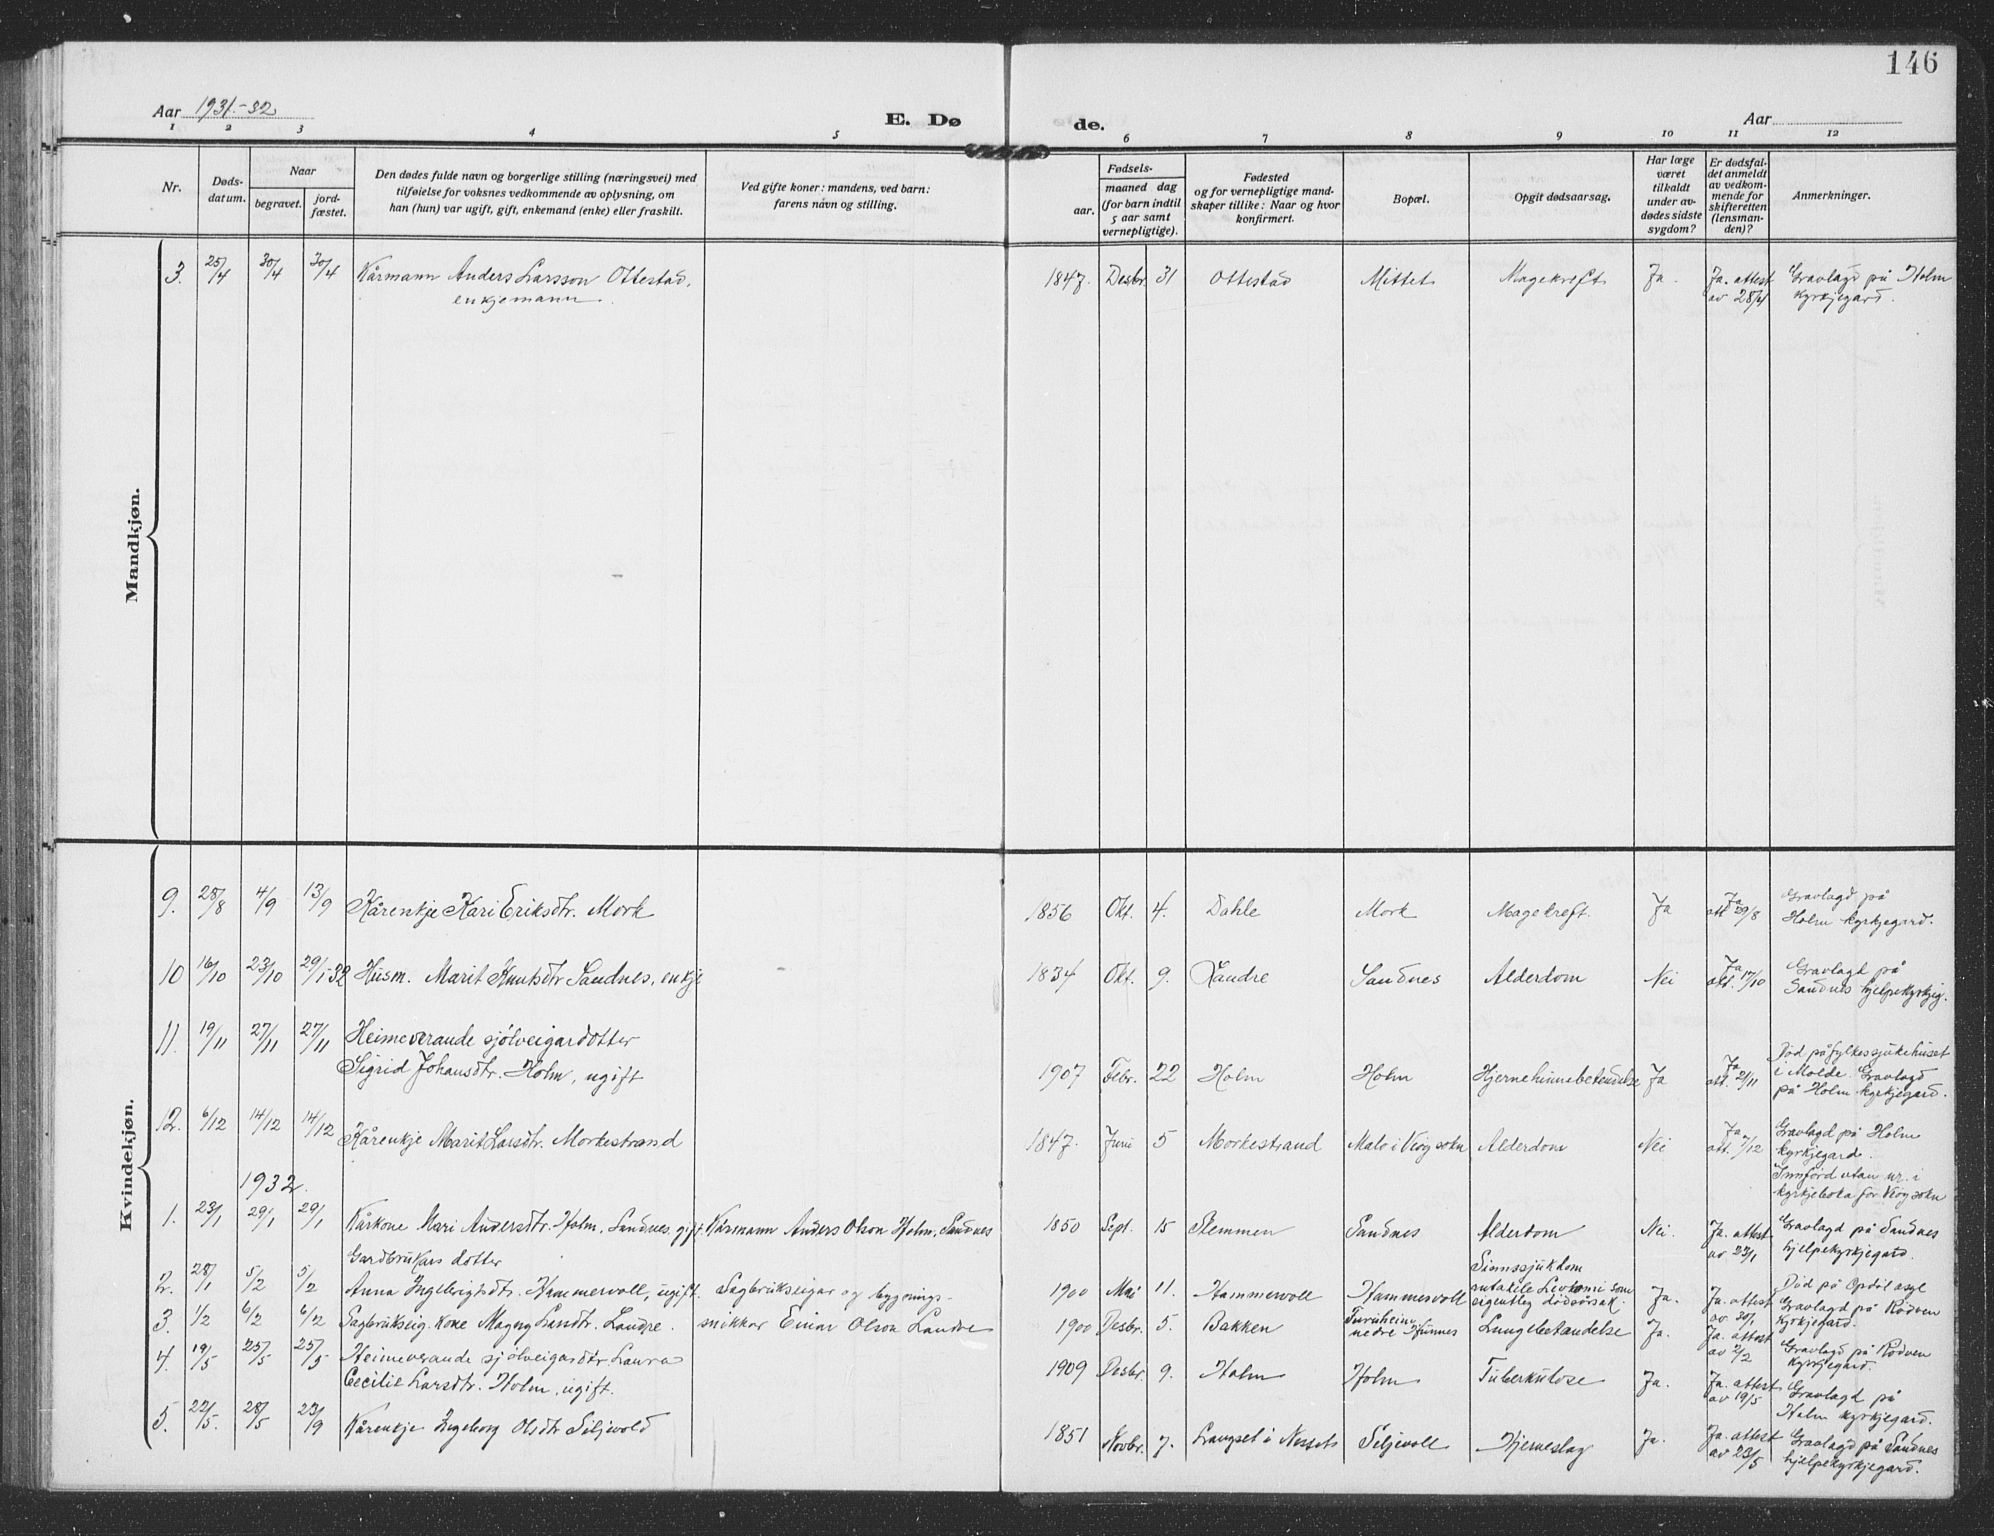 146
Aar 1931.-32
E. Dø de.
Aar
1 2 3 4 5 6 7 8 9 10 11 12
Nr.
Døds-
datum.
Naar
begravet.
jord-
fæstet.
Den dødes fulde navn og borgerlige stilling (næringsvei) med
tilføielse for voksnes vedkommende av oplysning, om
han (hun) var ugift, gift, enkemand (enke) eller fraskilt.
Ved gifte koner: mandens, ved barn:
farens navn og stilling.
Fødsels-
aar.
maaned dag
(for barn indtil
5 aar samt
vernepligtige).
Fødested
og for vernepligtige mand-
skaper tillike: Naar og hvor
konfirmert.
Bopæl.
Opgit dødsaarsag.
Har læge
været
tilkaldt
under av-
dødes sidste
sygdom?
Er dødsfal-
det anmeldt
av vedkom-
mende for
skifteretten
(lensman-
den)?
Anmerkninger.
Mandkjøn.
3. 25/4 30/4 30/4 Kårmann Anders Larsson Ottestad,
enkjemann.
1847. Desbr. 31 Ottestad Mittet Magekreft Ja. Ja. attest
av 28/4
Gravlagd på Holm
kyrkjegard.
Kvindekjøn.
9. 28/8 4/9 13/9 Kårenkje Kari Eriksdtr. Mork 1856 Okt. 4. Dahle Mork Magekreft. Ja Ja
att 29/8
Gravlagd på
Holm kyrkjegard.
10 16/10 23/10 29/1-32 Husm. Marit Knutsdtr. Sandnes, enkje 1834 Okt. 9. Landre Sandnes Alderdom Nei Ja
att. 17/10
Gravlagd på
Sandnes hjelpekyrkjeg.
11. 19/11 27/11 27/11 Heimeverande sjølveigardotter
Sigrid Johansdtr. Holm, ugift 1907 Febr. 22 Holm Holm Hjernehinnebetendelse Ja Ja
att. 21/11
Død på fylkessjukehuset
i Molde. Gravlagd
på Holm kyrkjegard.
12. 6/12 14/12 14/12 Kårenkje Marit Larsdtr. Morkestrand 1847. Juni 5 Morkestrand Malo i Veøy sokn Alderdom Nei Ja
att. 7/12
Gravlagd på Holm
kyrkjegard.
Innførd utan nr. i
kyrkjeboka for Veøy sokn
1932.
1. 23/1 29/1 29/1 Kårkone Mari Andersdtr. Holm, Sandnes, gift. Kårmann Anders Olson Holm, Sandnes 1850 Sept. 15 Stemmen Sandnes Alderdom Nei. Ja. attest
av 23/1
Gravlagd på Sandnes
hjelpekyrkjegard.
Gardbrukars dotter
2. 28/1 5/2 5/2 Anna Ingebrigtsdtr. Hammervoll, ugift. 1900 Mai 11. Hammervoll Hammervoll Sinnssjukdom
eigentleg dødsorsak. Ja. Ja. attest
av 30/1
Død på Opdøl asyl
Gravlagd på Rødven
kyrkjegard.
3. 1/2 6/2 6/2 Sagbrukseig. kone Magny Landre. Sagbrukseigar og bygnings-
snikkar Einar Olson Landre 1900 Desbr. 5. Bakken Furuheim
nedre Lungebetendelse Ja. Ja. attest
av 2/2
Gravlagd på Rødven
kyrkjegard.
4. 19/5 25/5 25/5 Heimeverande sjølveigardtr Laura
Cecilie Larsdtr. Holm, ugift. 1909 Desbr. 9. Holm Holm Tuberkulose Ja. Ja. attest
av 19/5
Gravlagd på
Holm kyrkjegard.
5. 22/5. 28/5 23/9 Kårenkje Ingeborg Olsdtr Seljevold 1851 Novbr. 7. Langset i Nesset Seljevoll Hjerneslag Ja. Ja. attest
av 23/5
Gravlagd på Sandnes
hjelpekyrkjegard.